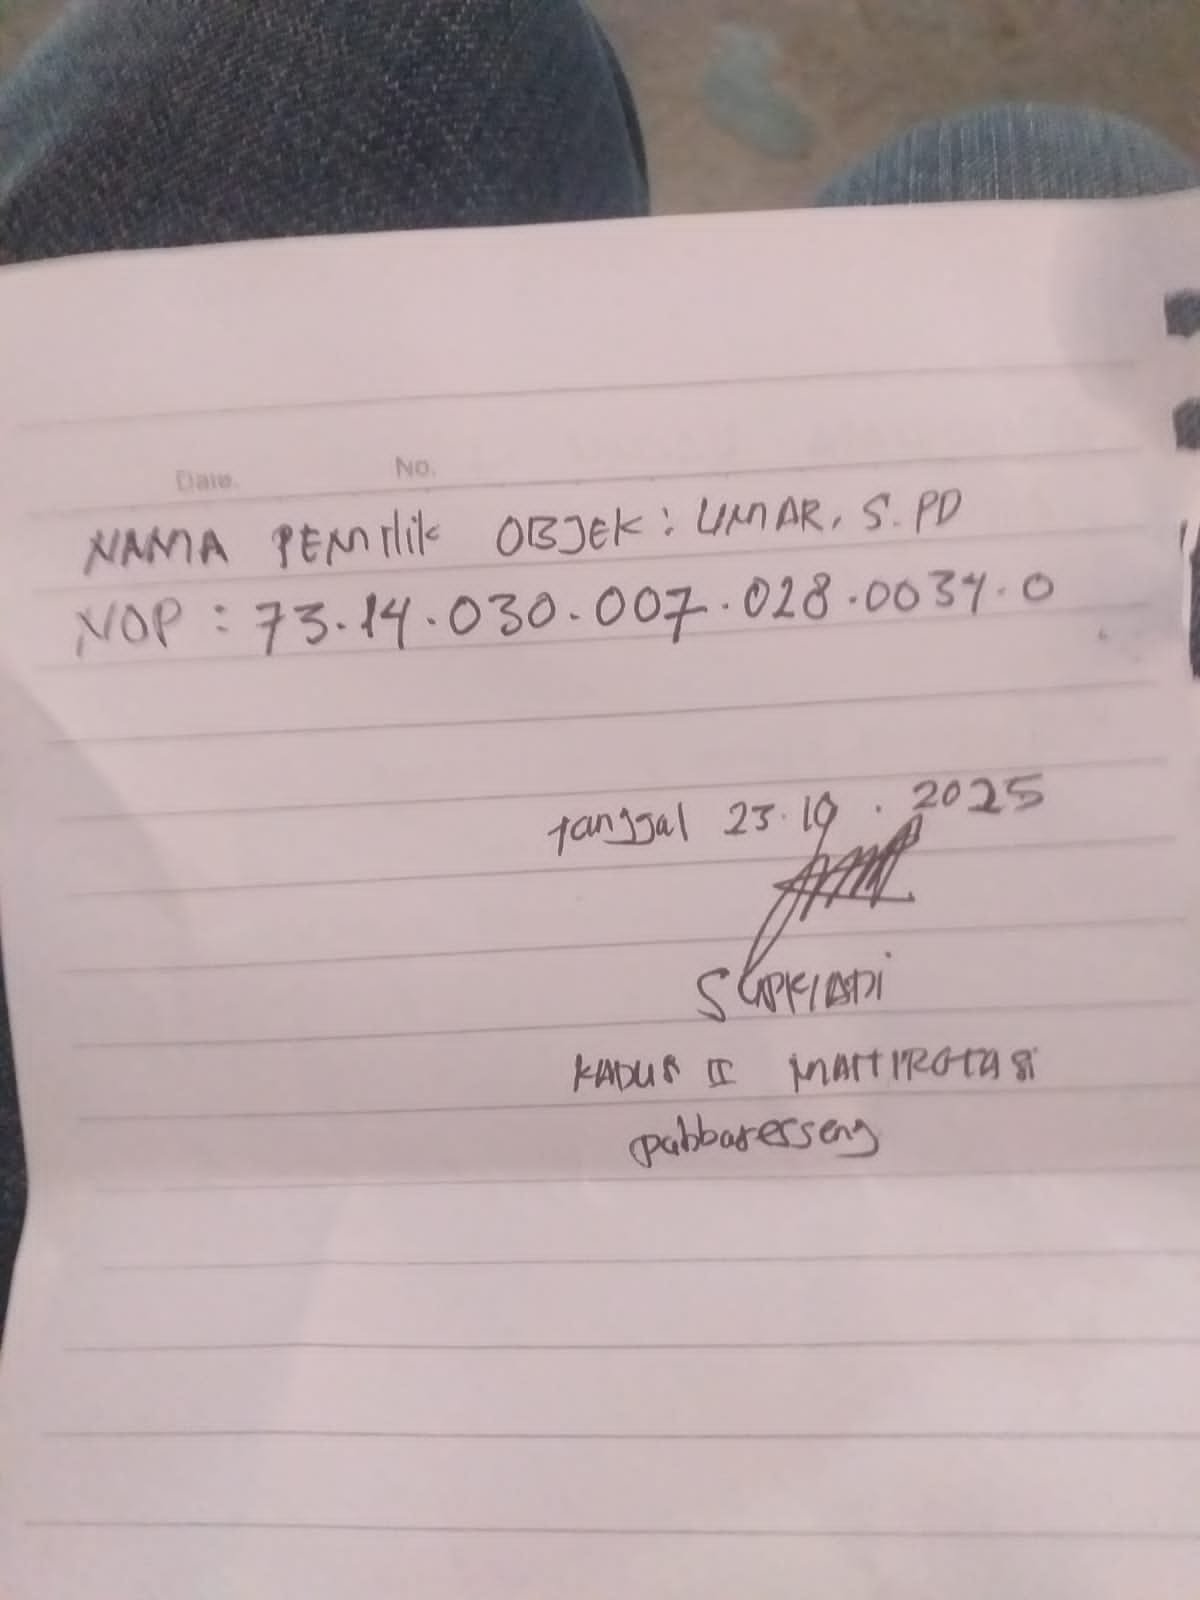 Date. No.
NAMA PEMILIK OBJEK : UMAR, S. PD
NOP : 73.14.030.007.028.0034.0
tanggal 23.10.2025
SUPRIADI
KADUS II MATTIROTASI
pabbaresseng